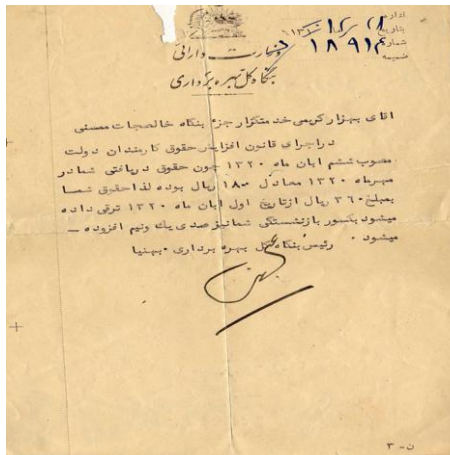 اداره
بتاریخ
شماره ۱۸۹۱۴
ضمیمه
وزارت دارائی
بنگاه کل بهره برداری
آقای بهزار کریمی خدمتگزار جزء بنگاه خالصجات ممسنی
در اجرای قانون افزایش حقوق کارمندان دولت
مصوب ششم ابان ماه ۱۳۲۰ چون حقوق دریافتی شما در
مهرماه ۱۳۲۰ معادل ۱۸۰ ریال بوده لذا حقوق شما
بمبلغ ۳۶۰ ریال از تاریخ اول ابان ماه ۱۳۲۰ ترقی داده
میشود بکسور بازنشستگی شما نیز صدی یک ونیم افزوده —
میشود ۰ رئیس بنگاه کل بهره برداری ۰ بهنیا
ن - ۳